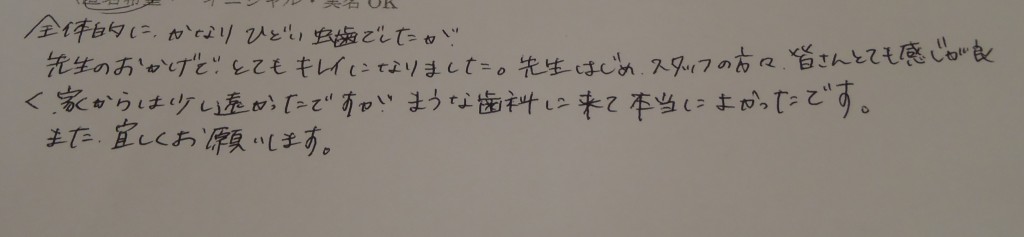 匿名希望・イニシャル・実名OK
全体的に、かなりひどい虫歯でしたが
先生のおかげで、とてもキレイになりました。先生はじめ、スタッフの方々、皆さんとても感じが良
く、家からは少し遠かったですが、まうな歯科に来て本当によかったです。
また、宜しくお願いします。